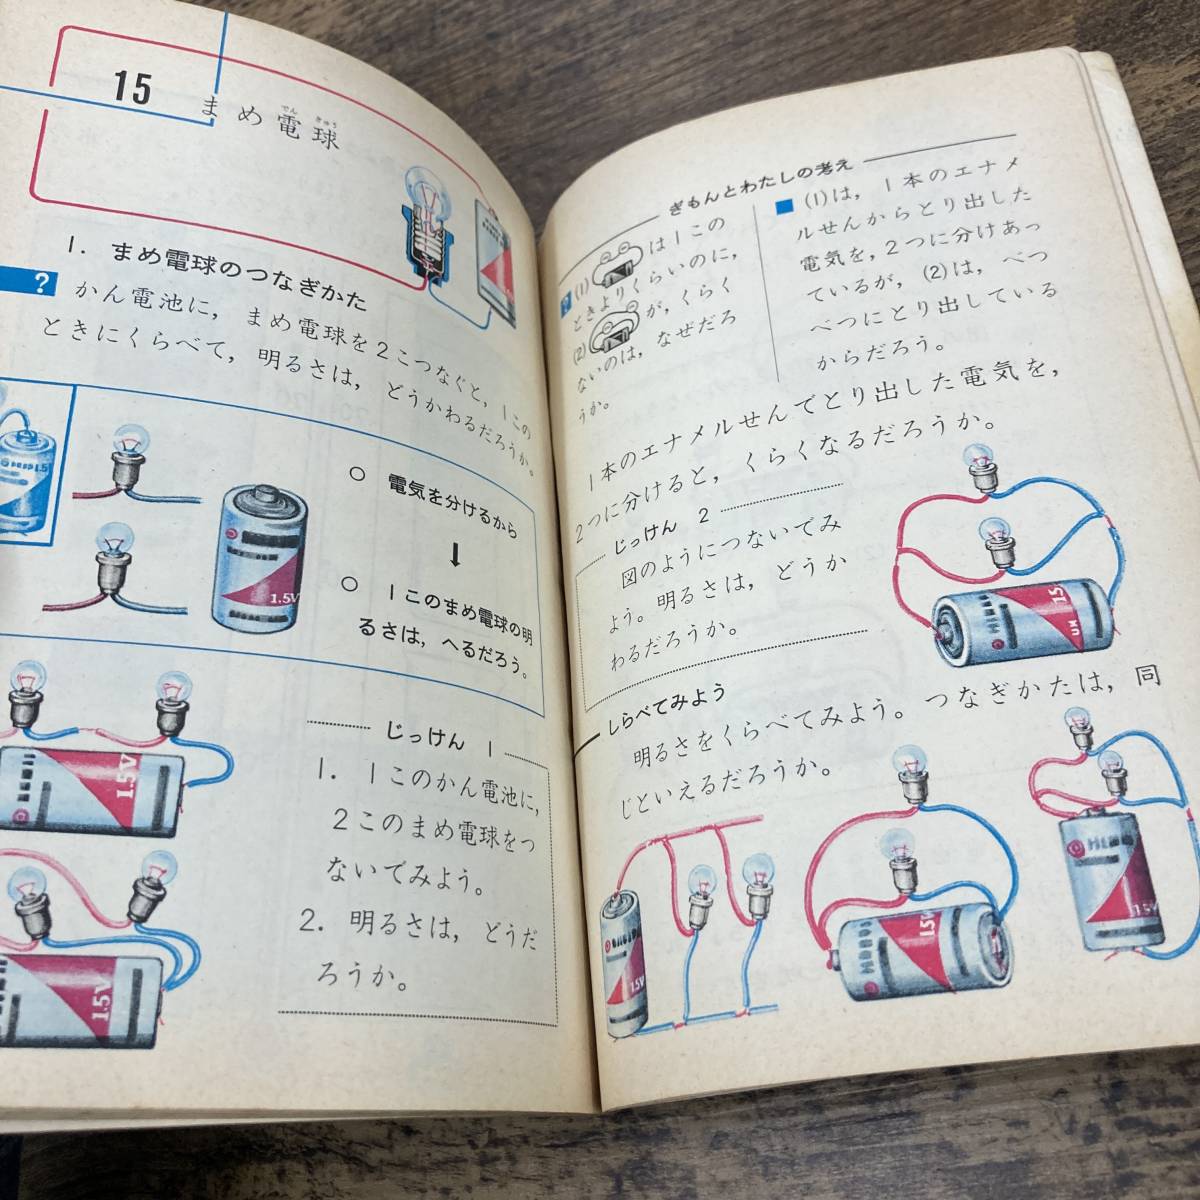 15
まめ電球
でん きゅう
1. まめ電球のつなぎかた
?
かん電池に, まめ電球を2こつなぐと, 1この
ときにくらべて, 明るさは, どうかわるだろうか。
○ 電気を分けるから
↓
○ 1このまめ電球の明
るさは, へるだろう。
1.5V
1.5V
1.5V
じっけん 1
1. 1このかん電池に,
2このまめ電球をつ
ないでみよう。
2. 明るさは, どうだ
ろうか。
ぎもんとわたしの考え
?
(1) は1この
ときよりくらいのに,
(2) が, くらく
ないのは, なぜだろ
うか。
(1)は, 1本のエナメ
ルせんからとり出した
電気を, 2つに分けあっ
ているが, (2)は, べつ
べつにとり出している
からだろう。
1本のエナメルせんでとり出した電気を,
2つに分けると, くらくなるだろうか。
じっけん 2
図のようにつないでみ
よう。明るさは, どうか
わるだろうか。
しらべてみよう
明るさをくらべてみよう。つなぎかたは, 同
じといえるだろうか。
1.5V
1.5V
1.5V